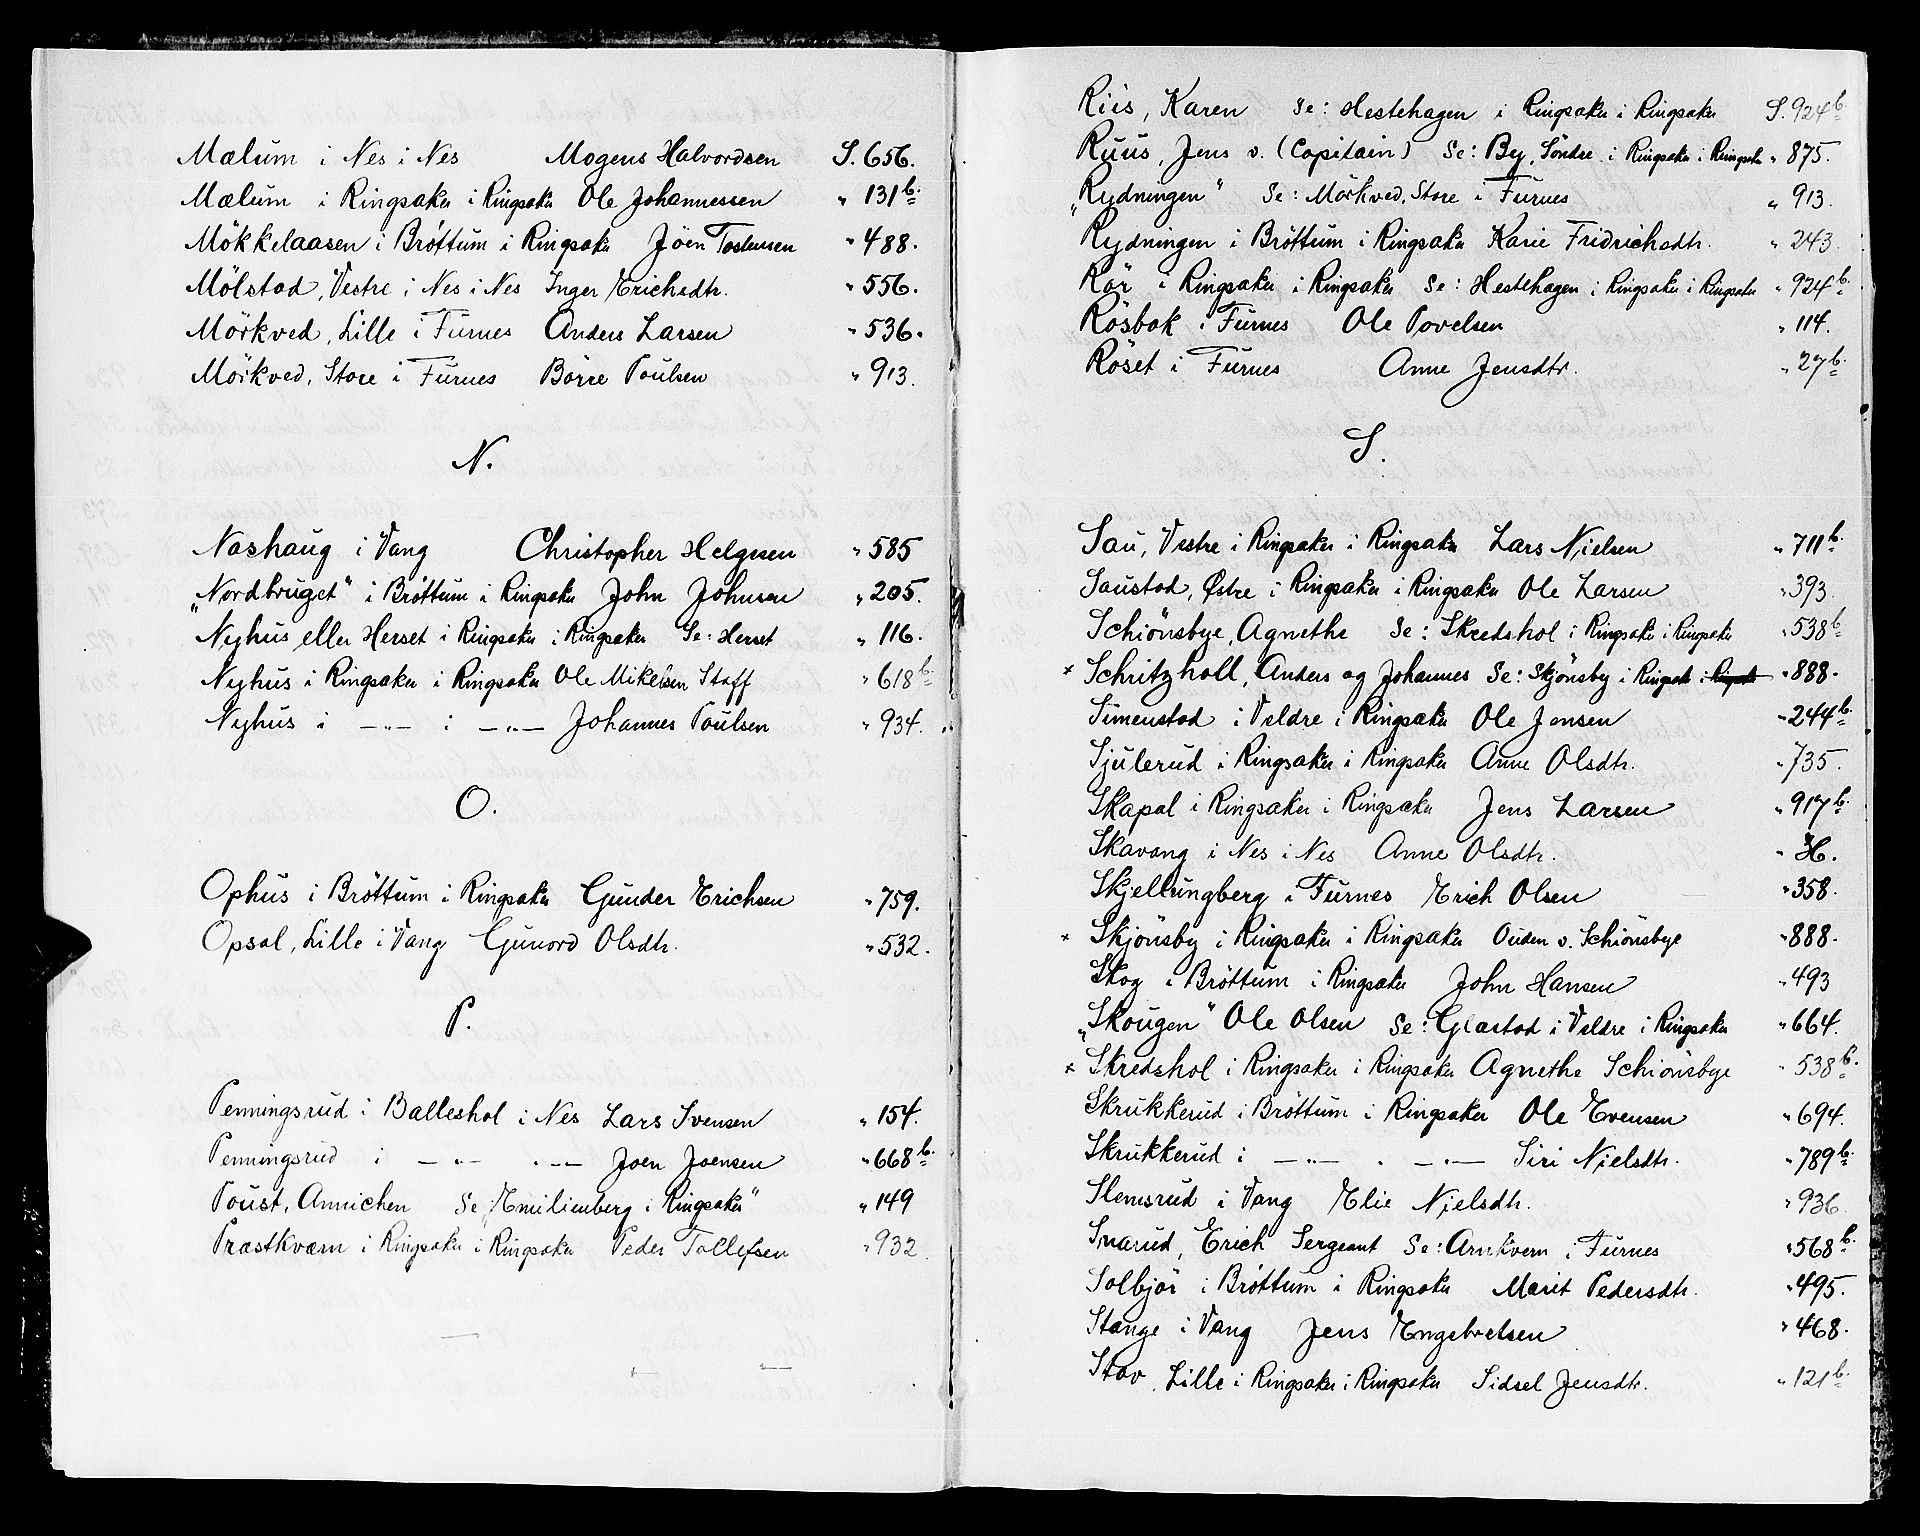 Mælum i Nes i Nes Mogens Halvordsen S. 656.
Mælum i Ringsaker i Ringsaker Ole Johannessen " 131 b.
Mökkelaasen i Bröttum i Ringsaker Jöen Tostensen " 488.
Mölstad, Vestre i Nes i Nes Inger Erichsdtr. " 556.
Mörkved, Lille i Furnes Anders Larsen " 536.
Mörkved, Store i Furnes Börre Poulsen " 913.
N.
Nashaug i Vang Christopher Helgesen " 585
„Nordbruget" i Bröttum i Ringsaker John Johnsen " 205.
Nyhus eller Herset i Ringsaker i Ringsaker Se: Herset " 116.
Nyhus i Ringsaker i Ringsaker Ole Mikelsen Staff " 618 b.
Nyhus i —"— i —"— Johannes Poulsen " 934.
O.
Ophus i Bröttum i Ringsaker Gunder Erichsen " 759.
Opsal, Lille i Vang Gunord Olsdtr. " 532.
P.
Penningsrud i Balleshol i Nes Lars Svensen " 154.
Penningsrud i —"— "— Joen Joensen " 668 b.
Poust, Annichen Se „Emilienberg i Ringsaker" " 149
Præstkværn i Ringsaker i Ringsaker Peder Tollefsen " 932
Riis, Karen Se: Hestehagen i Ringsaker i Ringsaker S. 924 b.
Ruus, Jens v. (Capitain) Se: By, Söndre i Ringsaker i Ringsaker " 875.
„Rydningen" Se: Mörkved, Store i Furnes " 913.
Rydningen i Bröttum i Ringsaker Karie Fridrichsdtr. " 243.
Rör i Ringsaker i Ringsaker Se: Hestehagen i Ringsaker i Ringsaker " 924 b.
Rösbak i Furnes Ole Povelsen " 114.
Röset i Furnes Anne Jensdtr. " 27 b.
S.
Sau, Vestre i Ringsaker i Ringsaker Lars Nielsen " 711 b.
Saustad, Østre i Ringsaker i Ringsaker Ole Larsen " 393.
Schiönsbye, Agnethe Se: Skredshol i Ringsaker i Ringsaker " 538 b
× Schritzholl, Anders og Johannes Se: Skjönsby i Ringsaker i Ringsaker " 888.
Simenstad i Veldre i Ringsaker Ole Jensen " 244 b.
Sjulerud i Ringsaker i Ringsaker Anne Olsdtr. " 735.
Skapal i Ringsaker i Ringsaker Jens Larsen " 917 b.
Skavang i Nes i Nes Anne Olsdtr.
Skjellungberg i Furnes Erich Olsen " 358.
× Skjönsby i Ringsaker i Ringsaker Ouden v. Schiönsbye " 888.
Skog i Bröttum i Ringsaker John Hansen " 493
„Skougen" Ole Olsen Se: Glæstad i Veldre i Ringsaker " 664.
× Skredshol i Ringsaker i Ringsaker Agnethe Schiönsbye " 538 b.
Skrukkerud i Bröttum i Ringsaker Ole Evensen " 694.
Skrukkerud i —"— " —"— Siri Nielsdtr. " 789 b.
Slemsrud i Vang Elie Nielsdtr. " 936.
Snarud, Erich Sergeant Se: Arnkvern i Furnes " 568 b.
Solbjör i Bröttum i Ringsaker Marit Pedersdtr. " 495.
Stange i Vang Jens Engebretsen " 468.
Stav, Lille i Ringsaker i Ringsaker Sidsel Jensdtr. " 121 b.